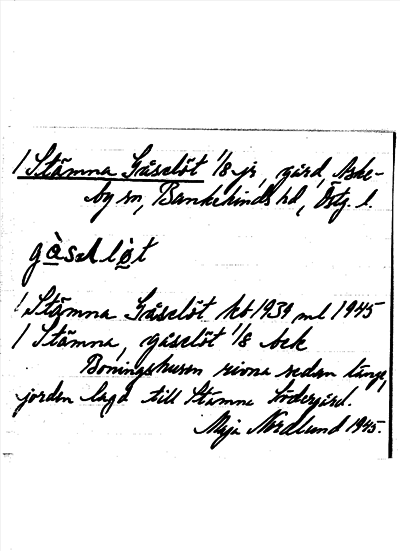 1 Stämna Gåselöt 1/8 jr, gård, Aske-
by sn, Bankekinds hd, Östg. l.
1 Stämna Gåselöt kb 1939 ml 1945
1 Stämna, gåselöt 1/8 bek
Boningshusen rivna sedan länge,
jorden lagd till Stämna Södergård.
Maja Nordlund 1945.